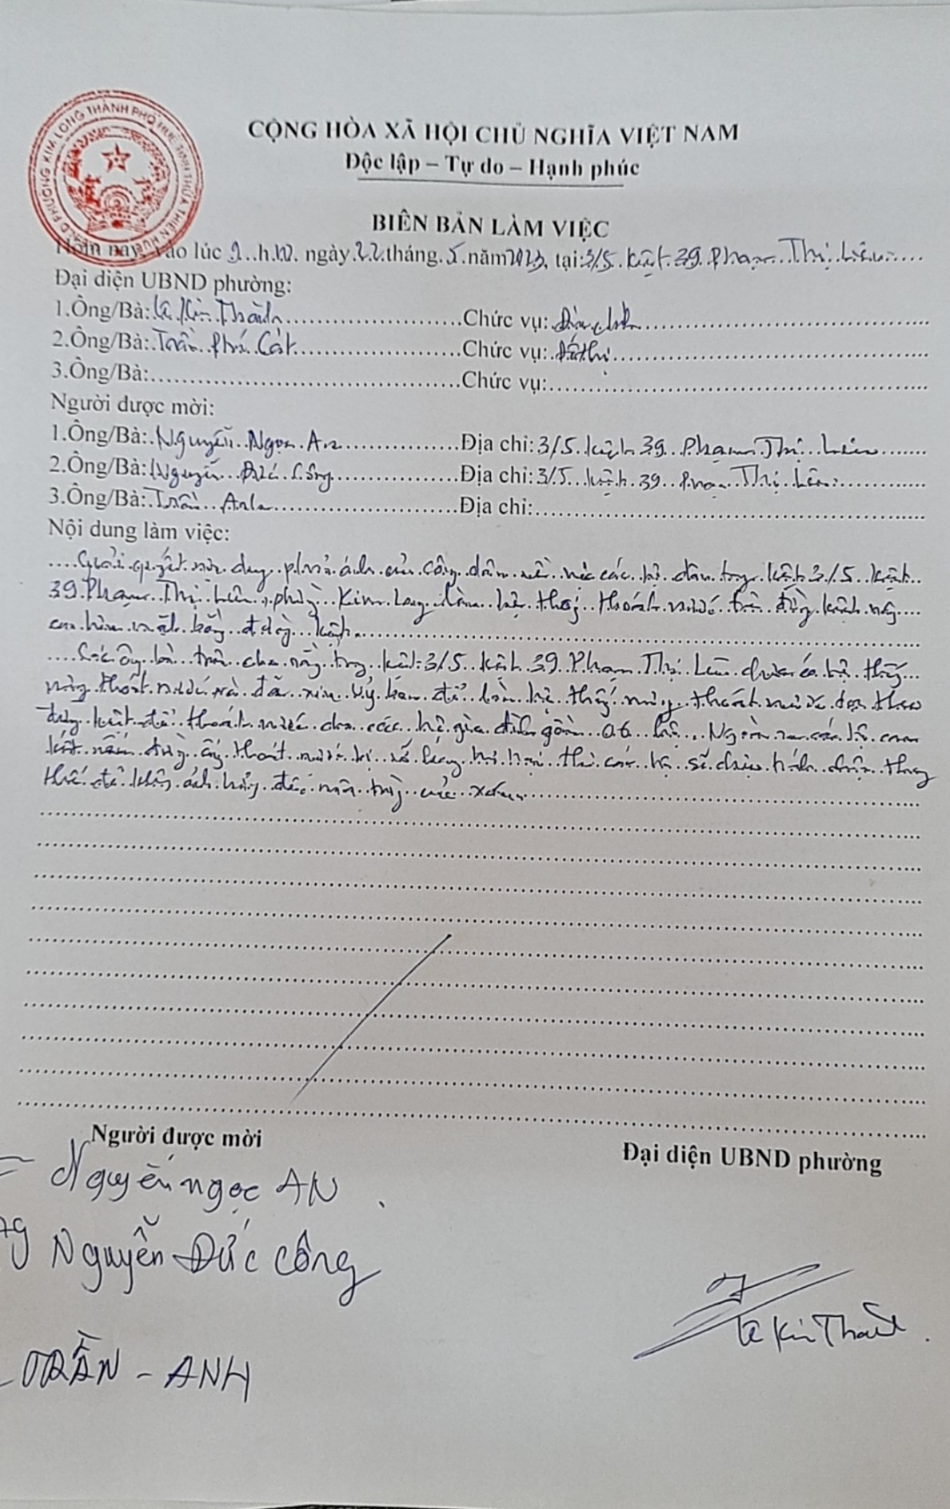 U.B.N.D PHƯỜNG KIM LONG THÀNH PHỐ HUẾ, TỈNH THỪA THIÊN HUẾ
CỘNG HÒA XÃ HỘI CHỦ NGHĨA VIỆT NAM
Độc lập – Tự do – Hạnh phúc
BIÊN BẢN LÀM VIỆC
Hôm nay, vào lúc 9..h.10. ngày.22.tháng.5.năm2023, tại:3/5. kiệt.39.Phạm..Thị..Liên.....
Đại diện UBND phường:
1.Ông/Bà:Lê.Kim.Thành.....Chức vụ:
2.Ông/Bà:.Trần..Phú.Cát.....Chức vụ:.Đô.thị.....
3.Ông/Bà:.....Chức vụ:.....
Người được mời:
1.Ông/Bà:.Nguyễn..Ngọc.An.....Địa chỉ:3/5.kiệt.39..Phạm.Thị..Liên.....
2.Ông/Bà:Nguyễn..Đức.Công.....Địa chỉ:3/5..kiệt.39..Phạm..Thị.Liên.....
3.Ông/Bà:Trần..Anh.....Địa chỉ:.....
Nội dung làm việc:
....Giải.quyết.nội.dung..phản.ánh.của.công.dân..về..việc.các..hộ.dân.trong..kiệt.3/5..kiệt..
39.Phạm..Thị.Liên.,phường..Kim.Long.làm..hệ.thống..thoát.nước..trên..đường.kiệt
mặt.bằng..đường..kiệt.
....Các.ông.bà..trên..cho.rằng.trong..kiệt.3/5..kiệt.39.Phạm..Thị..Liên.chưa.có.hệ..thống...
thoát.nước.và..đã..xin..Ủy.ban..để.làm.hệ..thống thoát.nước..dọc.theo
đường.kiệt.để..thoát.nước..cho.các..hộ.gia.đình.gồm...06..hộ...Ngoài.ra.các.hộ..cam
kết.nếu..đường..ống.thoát..nước.bị hư.hại..thì.các..hộ..sẽ.chịu..trách..nhiệm..thay
thế.để.không.ảnh.hưởng..đến
Người được mời
Đại diện UBND phường
Nguyễn ngọc AN
Nguyễn Đức Công
Lê Kim Thành
TRẦN - ANH